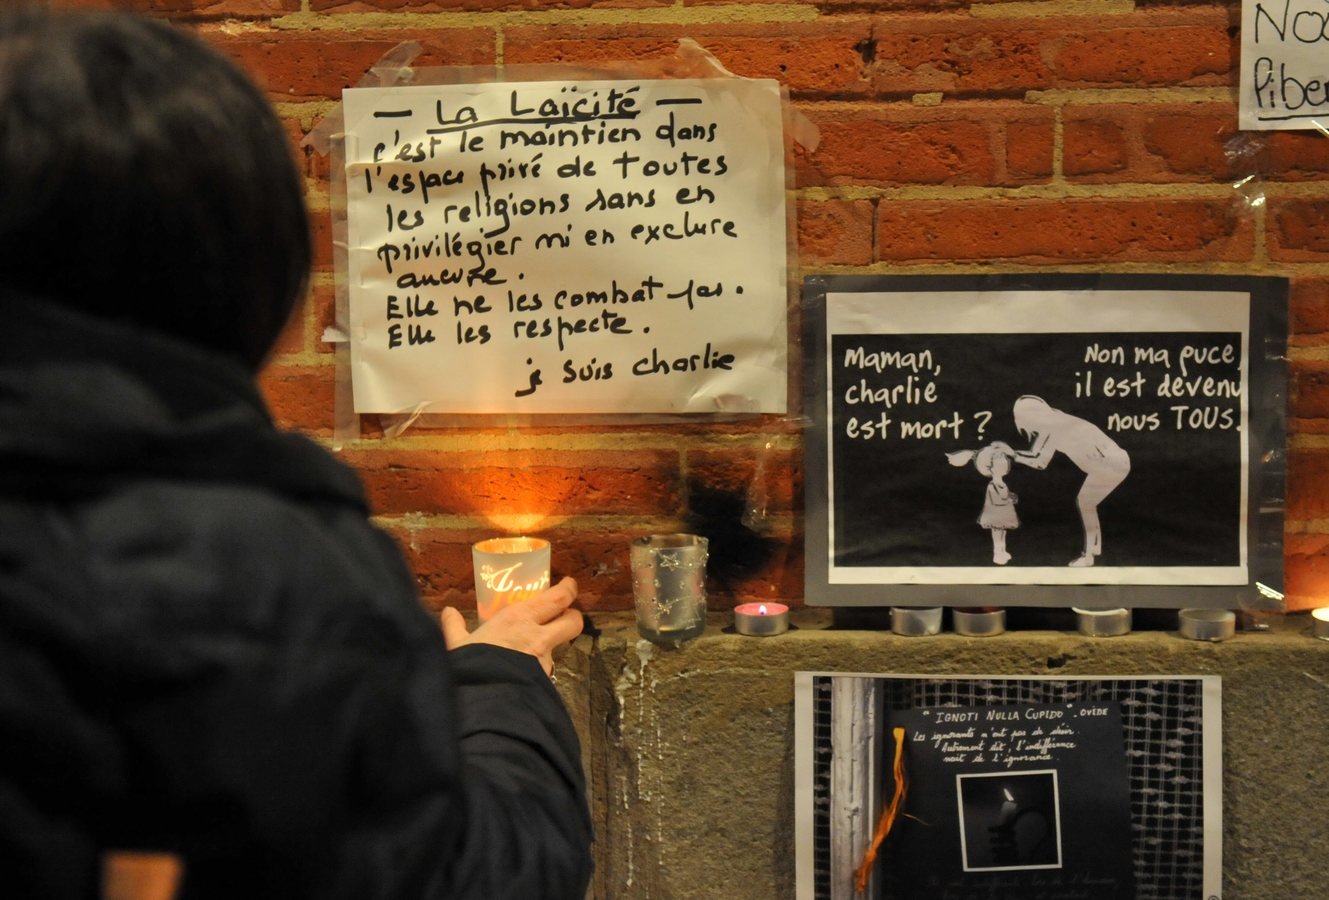 — La Laïcité —
c'est le maintien dans
l'espace privé de toutes
les religions sans en
privilégier ni en exclure
aucune.
Elle ne les combat pas.
Elle les respecte.
je suis charlie
Maman,
charlie
est mort ?
Non ma puce,
il est devenu
nous TOUS.
"IGNOTI NULLA CUPIDO". OVIDE
Les ignorants n'ont pas de désir.
Autrement dit, l'indifférence
nait de l'ignorance.